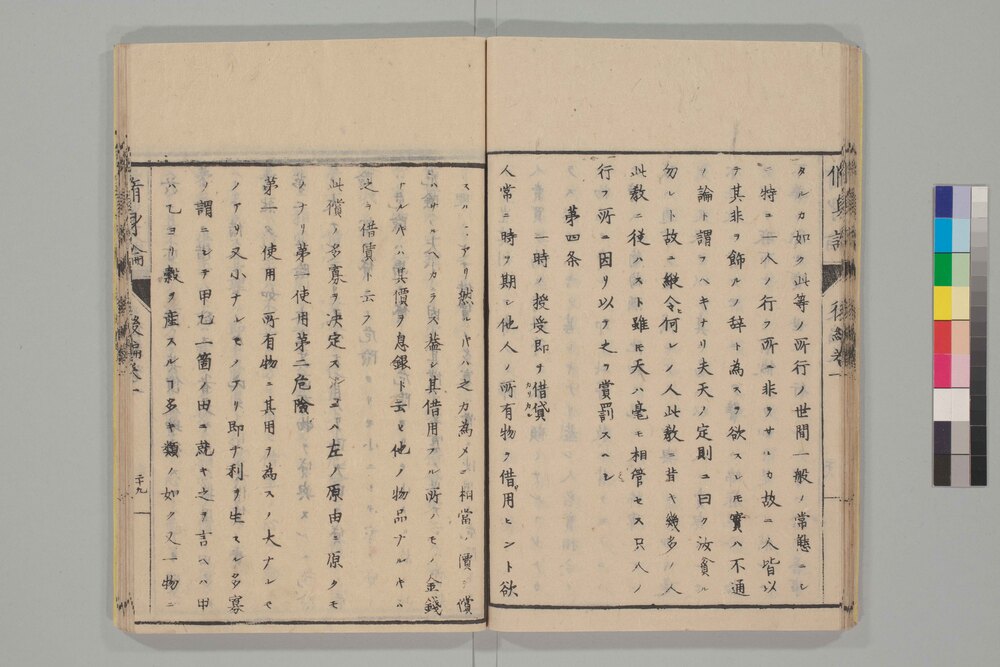 タルカ如ク此等ノ所行ノ世間一般ノ常態ニシ
特ニ一人ノ行フ所ニ非ラサルカ故ニ人皆以
テ其非ヲ飾ルノ辞ト為スヲ欲スレモ實ハ不通
ノ論ト謂フヘキナリ夫天ノ定則ニ曰ク汝貪ル
勿レト故ニ縱令何レノ人此教ニ背キ幾多ノ人
此教ニ従ハスト雖モ天ハ毫モ相管セス只人ノ
行フ所ニ因リ以テ之ヲ賞罰スヘシ
第四条
一時ノ授受即チ借貸カリカシ
人常ニ時ヲ期シ他人ノ所有物ヲ借用ヒント欲
スルアリ然ルキハ之カ為メニ相當ノ價ヲ償
ハサルヘカラス蓋シ其借用フル所ノモノ金錢
ナルキハ其價ヲ息銀ト云ヒ他ノ物品ナルキハ
之ヲ借賃ト云フ
此償ノ多寡ヲ決定スルコハ左ノ原由ニ原クモ
ノナリ第一使用第二危險
第一使用所有物ニ其用ヲ為スノ大ナレモ
ノアリ又小ナレモノアリ即チ利ヲ生スル多寡
ノ謂ニシテ甲乙二箇ノ田ニ就キ之ヲ言ヘハ甲
ハ乙ヨリ穀ヲ産スルコ多キ類ノ如ク又一物ニ
脩身論
後編卷一
二十九